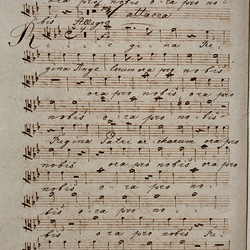 ora pro nobis ora pro no-
bis Allegro attacca
Re-gina Re
gina Angelorum ora pro nobis
ora pro nobis
nobis ora pro no-
Regina Patriarcharum ora pro
nobis ora pro nobis ora pro
nobis o-ra pro no-
bis o-ra pro no-
bis ora pro nobis Re